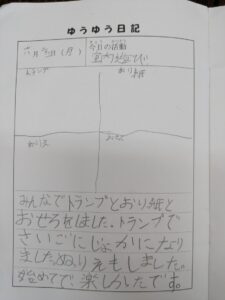 ゆうゆう日記
六月 日(月)
今日の活動
室内あそび
トランプ
おり紙
ぬりえ
おせろ
みんなでトランプとおり紙と
おせろをしました。トランプで
さいごにじょかになり
ました。ぬりえもしました。
始めてで、楽しいたです。